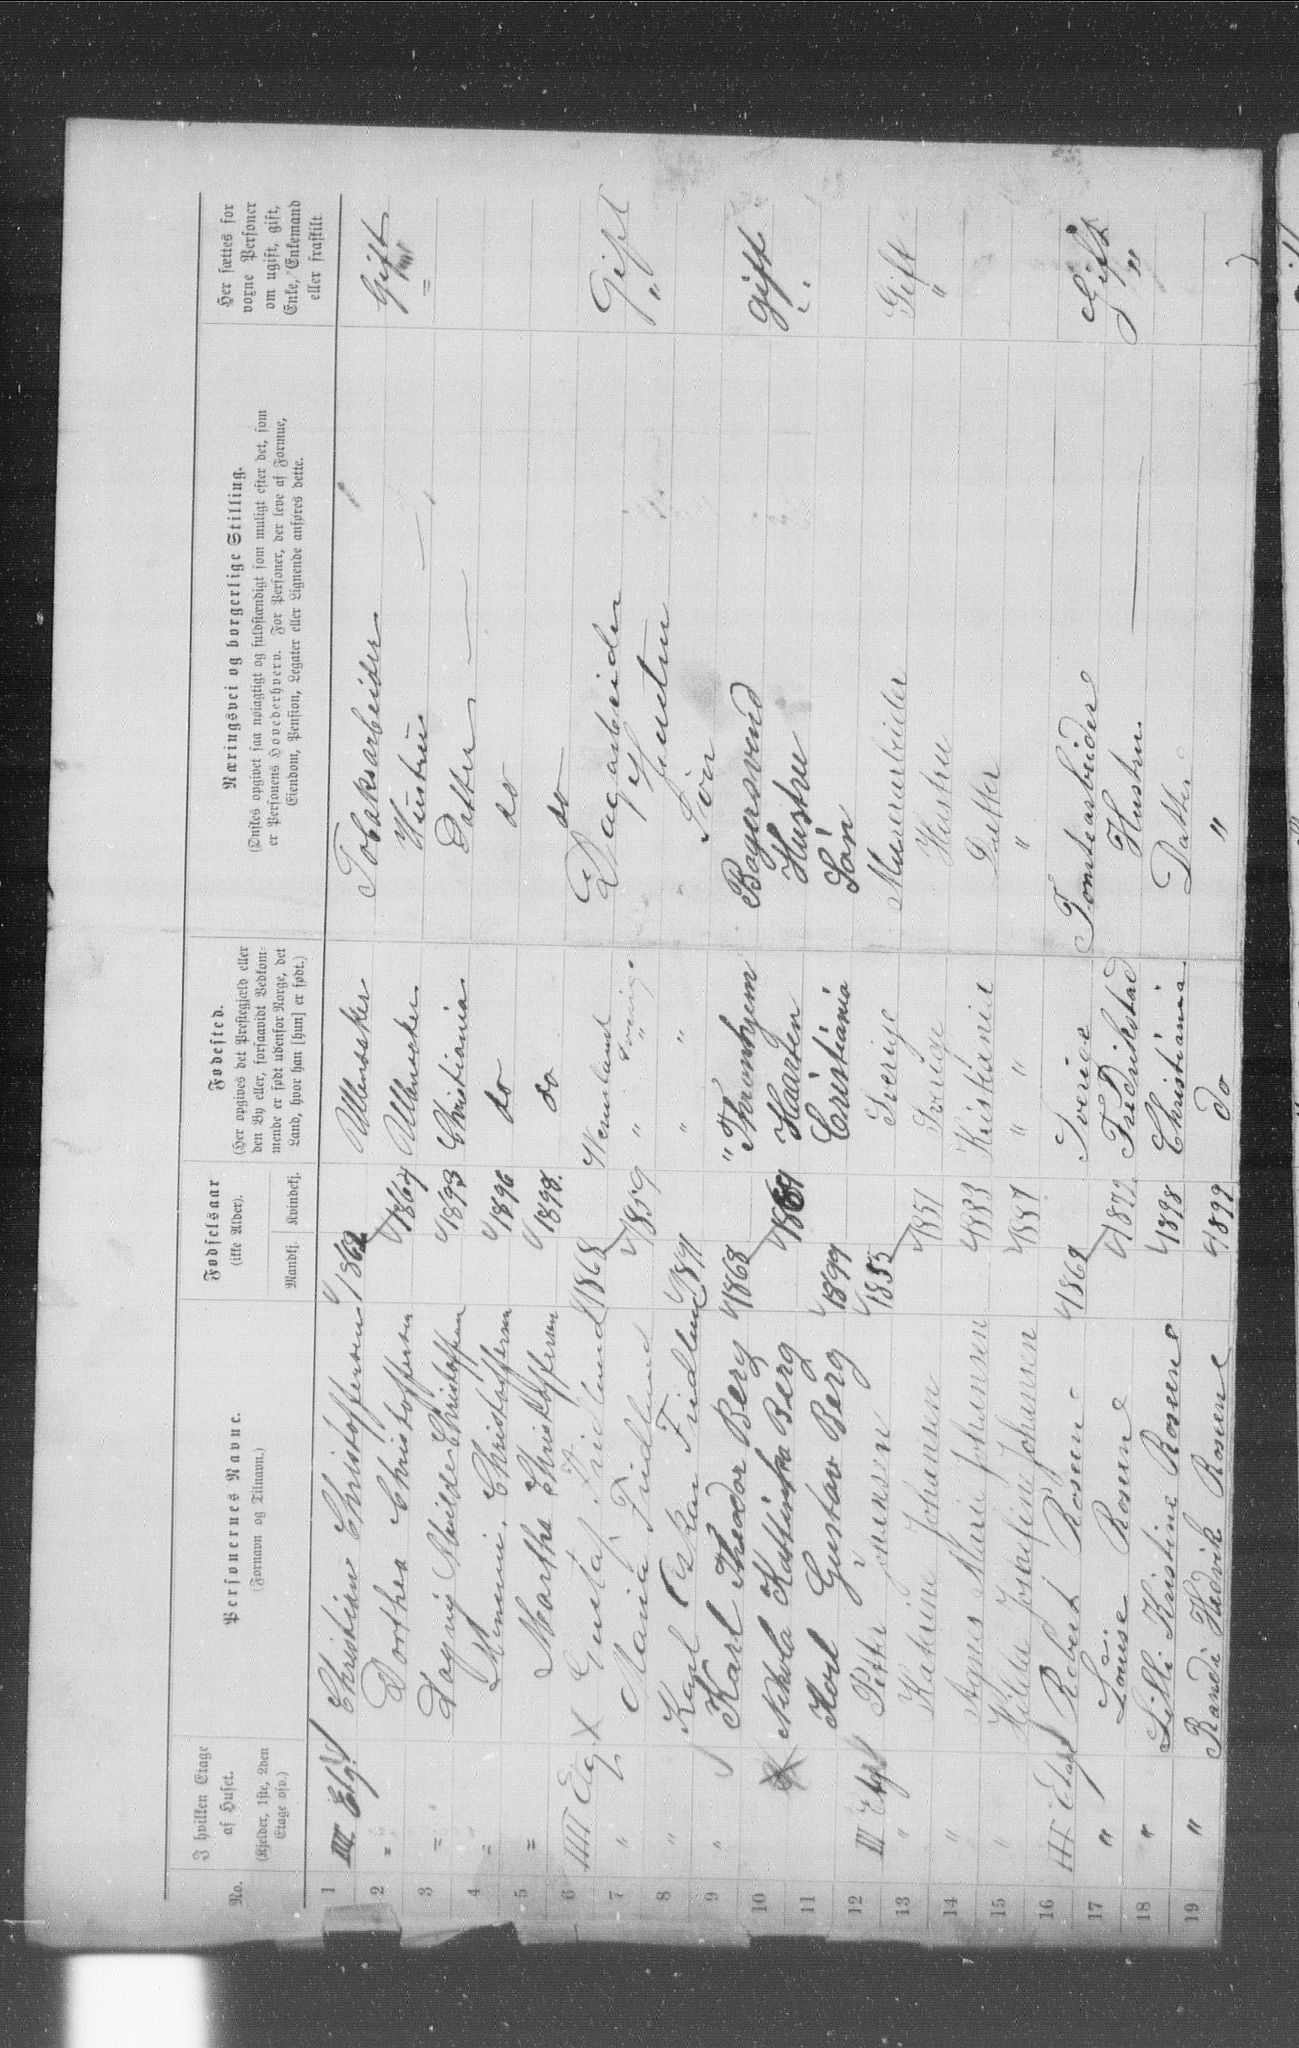 No.
I hvilken Etage
af Huset.
(Kjelder, 1ste, 2den
Etage osv.)
Personernes Navne.
(Fornavn og Tilnavn.)
Fødselsaar
(ikke Alder).
Mandkj. Kvindekj.
Fødested.
(Her opgives det Præstegjæld eller
den By eller, forsaavidt Vedkom-
mende er født udenfor Norge, det
Land, hvor han [hun] er født.)
Næringsvei og borgerlige Stilling.
(Ønskes opgivet saa nøiagtigt og fuldstændigt som muligt efter det, som
er Personens Hovederhverv. For Personer, der leve af Formue,
Eiendom, Pension, Legater eller Lignende anføres dette.
Her sættes for
voxne Personer
om ugift, gift,
Enke, Enkemand
eller fraskilt
1 IIII Etg Christian Christoffersen 1862 Ullensaker Tobaksarbeider Gift
2 " Dorthea Christoffersen 1864 Hustru "
3 " Dagny Christoffersen 1893 Christiania Datter
4 " Christoffersen 1896 do do
5 " Martha Christoffersen 1898 do do
6 IIII Etg X Gustaf Fridlund 1868 Vermland Sverige Dagarbeider Gift
7 " Maria Fridlund 1859 " " Hustru "
8 " Karl Oskar Fridlund 1891 " " Søn
9 " Karl Theodor Berg 1868 " Thronhjem Bagersvend gift
10 Nikola Berg Haarten Hustru
11 Karl Gustav Berg 1899 Cristiania Sån
12 III Etg Petter Johansen 1853 Sverige Murarbeider Gift
13 " Katrine Johansen 1857 Sverige Hustru "
14 " Agnes Marie Johansen 1883 Kristiania Datter
15 " Hilda Josefine Johansen 1887 " " "
16 Etage Robert Rosen 1869 Sverige Tomtearbeider Gift
17 " Louise Rosen 1872 Frederikstad Hustru "
18 " Lilli Kristine Rosen 1898 Christiania Datter
19 " Randi Hedvik Rosen 1899 do "